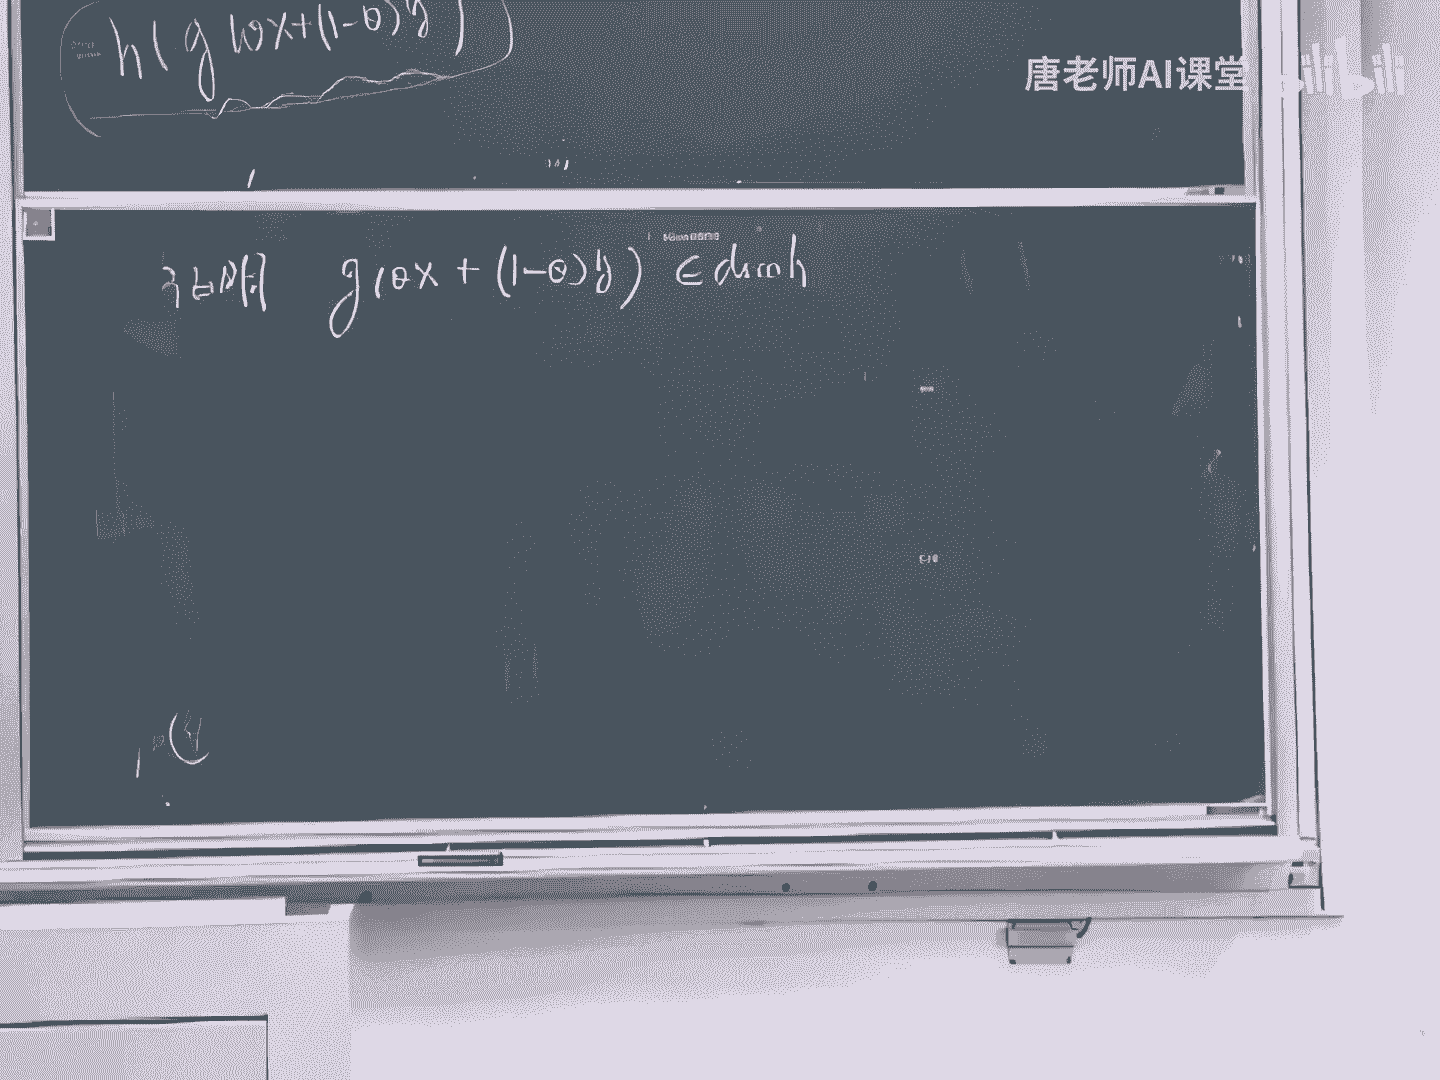 h(g(θx+(1-θ)y)
唐老师AI课堂 bilibili
要证明 g(θx + (1-θ)y) ∈ dom h